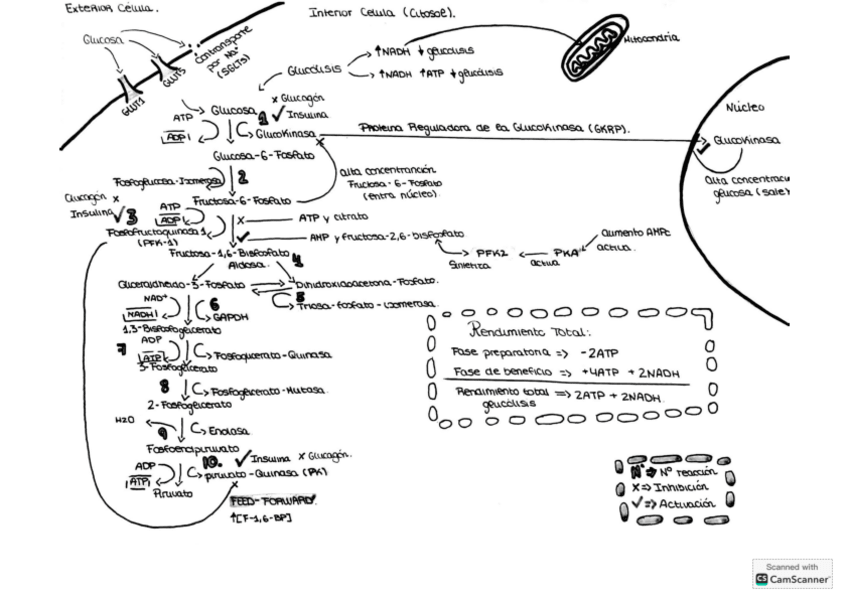 Exterior Célula.
Interior Celula (Citosol).
Glucosa
Cotransporte
por Na+
(SGLT3)
GLUT1
GLUT3
Glucólisis
↑NADH ↓ glucólisis
↑NADH ↑ATP ↓ glucólisis
Mitocondria
Núcleo
Glucosa 1
x Glucagón
✓ Insulina
ATP
ADP
Glucokinasa
Proteina Reguladora de la Glucokinasa (GKRP).
Glucokinasa
Glucosa-6-Fosfato
Fosfoglucosa-Isomerasa 2
Alta concentranción
Fructosa-6-Fosfato
(entra núcleo).
glucosa (sale)
Glucagón x
Insulina ✓ 3
Fructosa-6-Fosfato
ATP
ADP
(PFK-1)
x ATP y citrato
✓ AMP y fructosa-2,6-Bisfosfato
Sintetiza
PFK2
activa
PKA
activa.
Aumento AMPc
Fructosa-1,6-Bisfosfato
Aldosa. 4
Gliceraldheido-3-Fosfato
Dihidroxiacetona-Fosfato.
5
Triosa-fosfato-isomerasa.
NAD+
NADH
6
GAPDH
1,3-Bisfosfoglicerato
7
ADP
ATP
Fosfoglicerato-Quinasa
3-Fosfoglicerato
8
Fosfoglicerato-Mutasa
2-Fosfoglicerato
H2O
9
Enolasa
Fosfoenolpiruvato
ADP
ATP
10.
✓ Insulina x Glucagón.
piruvato-Quinasa (PK)
x
Piruvato
FEED-FORWARD
↑[F-1,6-BP]
Rendimiento Total:
Fase preparatoria => -2ATP
Fase de beneficio => +4ATP + 2NADH
Rendimiento total => 2ATP + 2NADH.
glucólisis
Nº => Nº reacción
x => Inhibición
✓ => Activación
Scanned with
CS CamScanner